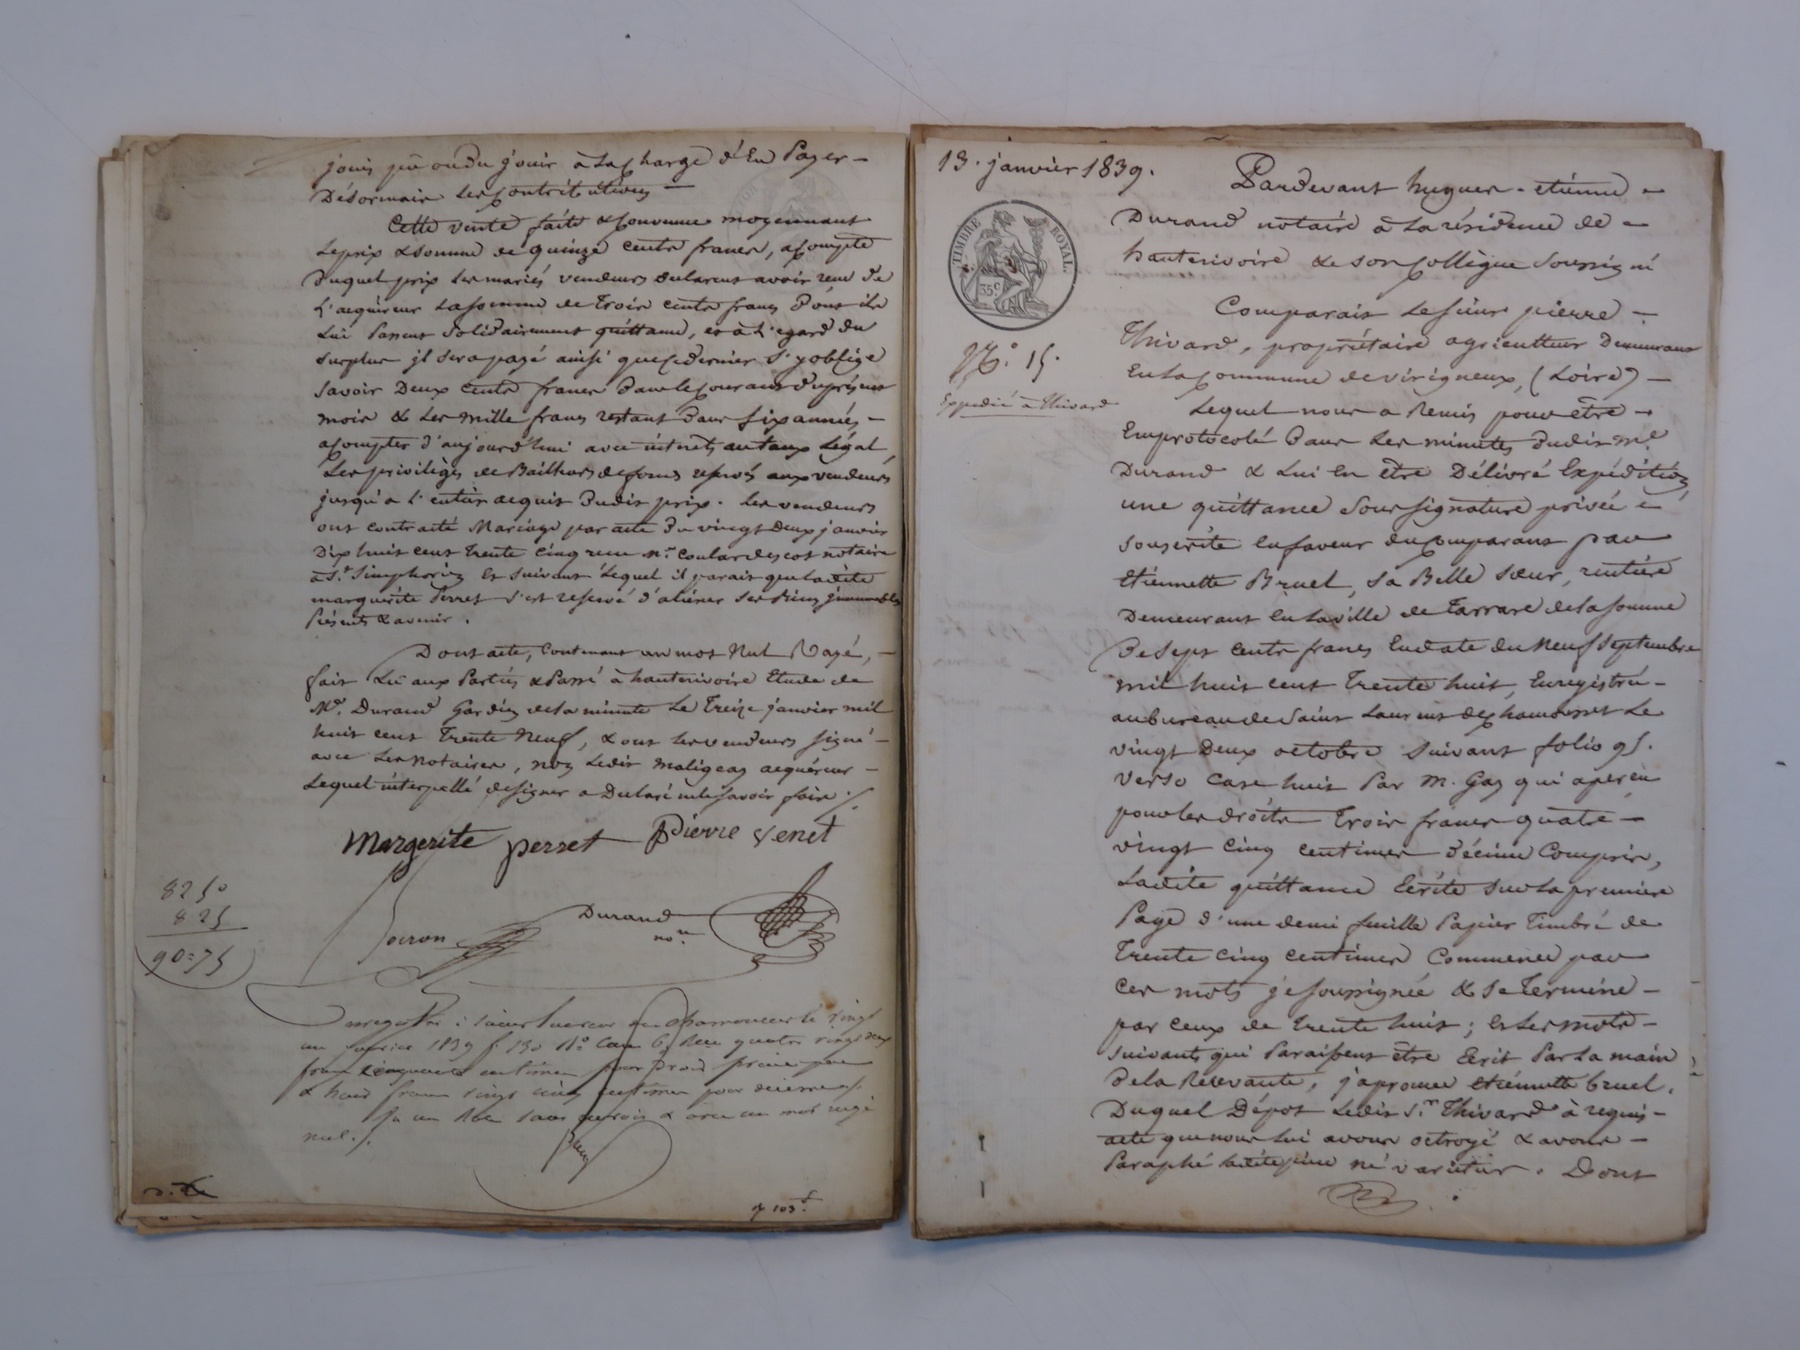 jouis pû ou du jouir à la charge d'En Payer –
Désormais les contributions –
Cette vente faite & convenue moyennant
le prix & somme de quinze cents francs, acompte
duquel prix les mariés vendeurs declarent avoir reçu de
l'acquéreur la somme de trois cents francs dont ils
lui Passent solidairement quittance, et à l'egard du
surplus jl sera payé ainsi que ce dernier s'y oblige
savoir Deux cents francs dans le courant du présent
mois & les mille francs restant dans six années –
acompter d'aujourd'hui avec intérêts au taux légal
Les privilèges de Bailleurs de fonds reservés aux vendeurs
jusqu'à l'entier acquit dudit prix. Les vendeurs
ont contracté Mariage par acte du vingt deux janvier
Dix huit cent trente cinq reçu Mr. coulardescot notaire
à St. Simphorien Et suivant lequel il parait que ladite
marguerite Perret s'est reservé d'aliéner ses Biens jmmeubles
Présents & avenir.
Dont acte, Contenant un mot Nul Rayé, –
fait Lu aux Parties & Passé à hauterivoire Etude de
Me. Durand Gardien de la minute Le Treize janvier mil
huit cent Trente Neuf, & ont les vendeurs signé –
avec les Notaires, non ledit maligeay acquéreur –
Lequel interpellé de signer a Declaré ne le savoir faire ./.
Margerite perret Pierre Venet
8250
825
90=75
Durand
nore
Enregistré à saint Laurent de chamousset le vingt
un janvier 1839 f. 130 Ro. Case 6, Reçu quatre vingt deux
francs cinquante centimes pour Droit
& huit francs vingt cinq centimes pour decime ./.
nul ./.
13. janvier 1839.
Pardevant hugues - etienne –
Durand notaire à la résidence de –
hauterivoire & son collègue soussigné
TIMBRE ROYAL.
35c
Comparait Le sieur pierre –
Thivard, propriétaire agriculteur Demeurant
No. 15.
En la commune de virigneux, (Loire) –
Expedié à Thivard
Lequel nous a Remis pour être –
Emprotocolé Dans les minutes dudit Me.
Durand & lui en être Délivré Expédition
une quittance sous signature privée –
souscrite en faveur du comparant par
etiennette Bruel, sa Belle sœur, rentière
Demeurant en la ville de Tarrare de la somme
De sept cents francs En date du Neuf septembre
mil huit cent Trente huit, Enregistrée –
au bureau de saint Laurent de chamousset Le
vingt Deux octobre suivant folio 95.
verso case huit Par M. Gay qui a perçu
pour les droits Trois francs quatre –
vingt cinq centimes décime Compris,
Ladite quittance Ecrite sur la première
Page d'une demi feuille Papier Timbré de
Trente cinq centimes Commence par
ces mots je soussignée & se Termine –
par ceux de trente huit; Et les mots –
suivants qui Paraissent être Ecrit Par la main
de la Recevante, j'aprouve etiennette bruel.
Duquel Dépot Ledit Sr. Thivard à requis –
acte que nous lui avons octroyé & avons –
Paraphé ladite pièce ne varietur. Dont